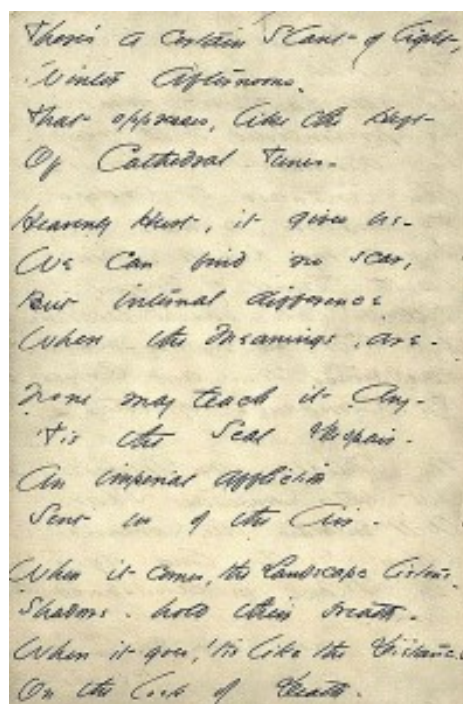 There's a certain Slant of light,
Winter Afternoons.
That oppresses, like the Heft
Of Cathedral Tunes.
Heavenly Hurt, it gives us-
We can find no scar,
But internal difference
When the Meanings, are.
None may teach it- Any-
'Tis the Seal Despair.
An imperial affliction
Sent us of the Air.
When it comes, the Landscape listens.
Shadows. hold their breath.
When it goes, 'tis like the Distance
On the look of Death.